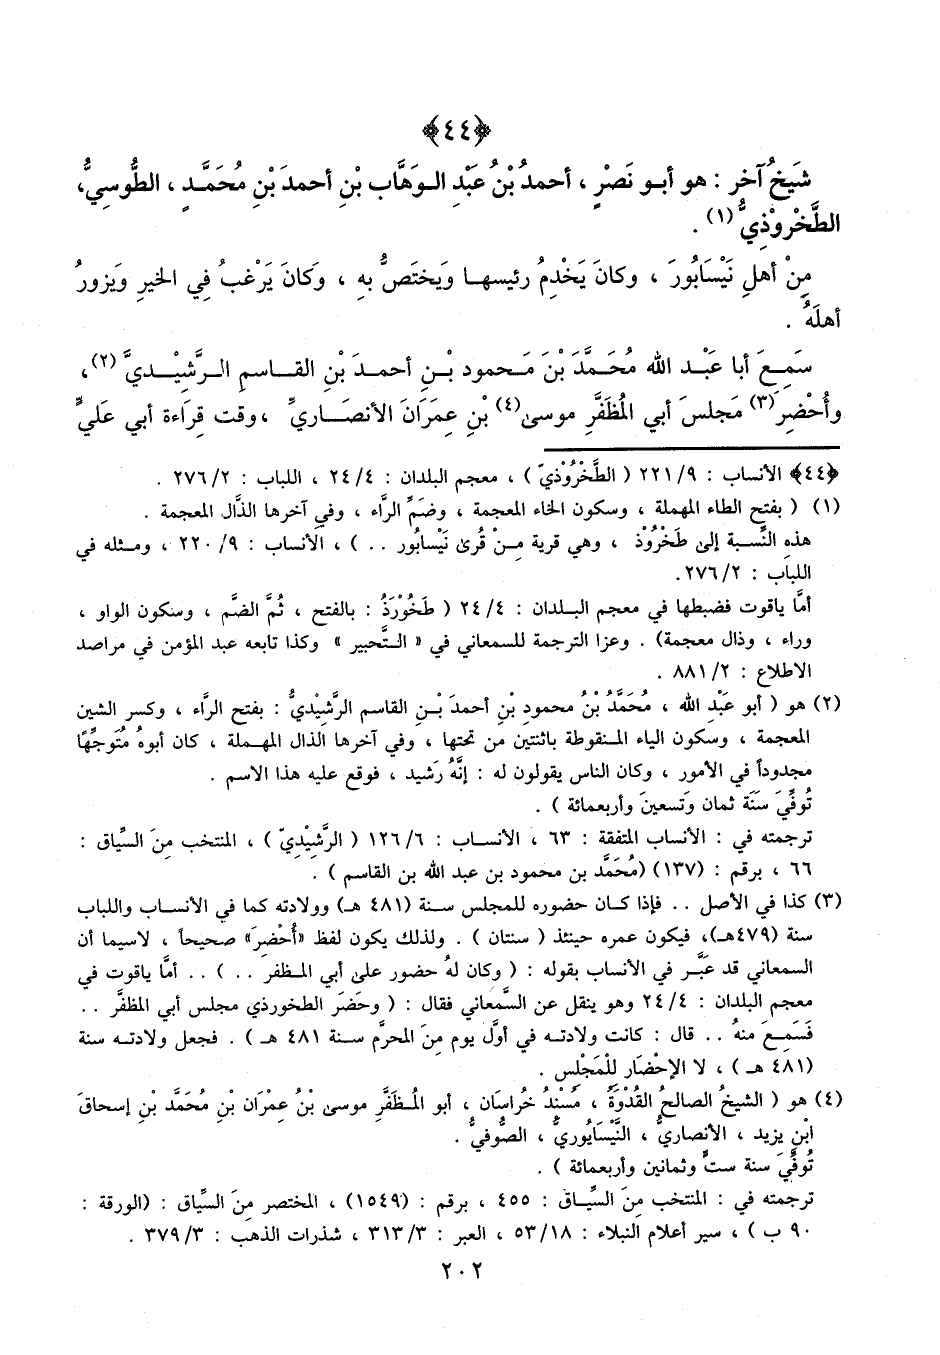 ﴿٤٤﴾
شَيخُ آخر : هو أبـو نَصْرٍ ، أحمدُ بْنُ عَبْدِ الـوَهَّاب بْنِ أحمدَ بْنِ مُحَمَّـدٍ ، الطُّوسِيُّ،
الطَّخْرُوْذِيُّ (١) .
مِنْ أهلِ نَيْسَابُورَ ، وكانَ يَخْدِمُ رئيسهـا وَيختَصُّ بهِ ، وَكانَ يَرْغبُ فِي الخيرِ وَيزورُ
أهلَهُ .
سَمِـعَ أبا عَبْـد الله مُحَـمَّدَ بْـنَ مَـحمود بْـنِ أحمـدَ بْنِ القـاسمِ الـرَّشِيْـديَّ (٢) ،
وأُحْضِرَ (٣) مَجلسَ أبي المُظَفَّرِ موسى (٤) بْنِ عِمرَانَ الأنصَـاريِّ ، وقت قِراءة أبي عَليٍّ
﴿٤٤﴾ الأنساب : ٩/ ٢٢١ ( الطَّخْرُوْذيّ ) ، معجم البلدان : ٤/ ٢٤ ، اللباب : ٢/ ٢٧٦ .
(١) ( بفتح الطاء المهملة ، وسكون الخاء المعجمة ، وضَمِّ الرَّاء ، وفي آخرها الذَّال المعجمة .
هذهِ النِّسبة إلىٰ طَخْرُوْذ ، وهي قرية مِـنْ قُرىٰ نَيْسابُور .. ) ، الأنساب : ٩/ ٢٢٠ ، ومـثله في
اللباب : ٢/ ٢٧٦.
أمَّا ياقوت فضبطها في معجم البـلدان : ٤/ ٢٤ ( طَخُورَذُ : بالفتح ، ثُمَّ الضَّم ، وسكون الواو ،
وراء ، وذال معجمة) . وعزا الترجمة للسمعاني في « الـتَّحبير » وكذا تابعه عبد المؤمن في مراصد
الاطلاع : ٢/ ٨٨١ .
(٢) هو ( أبو عَبْدِ الله ، مُحَمَّدُ بْنُ محمودِ بنِ أحمدَ بْـنِ القاسم الرَّشِيْديُّ : بفتح الرَّاء ، وكسر الشين
المعجمة ، وسكون الياء المـنقوطة باثنتين من تحتها ، وفي آخرها الدال المهـملة ، كان أبوهُ مُتَوجِّهًا
مجدوداً في الأمور ، وكان الناس يقولون له : إنَّهُ رَشيد ، فوقع عليه هذا الاسم .
تُوفِّيَ سَنَة ثمان وَتسعينَ وأربعمائة ) .
ترجمته في : الأنساب المتفقة : ٦٣ ، الأنسـاب : ٦/ ١٢٦ ( الرَّشِيْدِيّ ) ، المنتخب مِنَ السِّياق :
٦٦ ، برقم : (١٣٧) (مُحَمَّد بن محمود بن عبد الله بن القاسم ) .
(٣) كذا في الأصل .. فإذا كـان حضوره للمجلس سنة (٤٨١ هـ) وولادته كما في الأنساب واللباب
سنة (٤٧٩هـ)، فيكون عمره حينئذ ( سنتان ) . ولذلك يكون لفظ «أُحْضِرَ» صحيحاً ، لاسيما أن
السمعاني قد عَبَّـر في الأنساب بقوله : ( وكان لهُ حضور على أبي المـظفر .. ) .. أمَّا ياقوت في
معجم البلدان : ٤/ ٢٤ وهو ينقل عن السَّمعاني فقال : ( وحَضَر الطخورذي مجلس أبي المظفَّر ..
فَسَمِـعَ منهُ .. قال : كانت ولادتـه في أوَّل يوم مِنَ المحرَّم سـنة ٤٨١ هـ ) . فجعل ولادتـه سنة
(٤٨١ هـ ) ، لا الإحْضَار للْمَجْلِس .
(٤) هو ( الشيخُ الصالحُ القُدْوَةُ ، مُسْنِدُ خُراسَان ، أبو المُـظفَّرِ موسى بْنُ عِمْرَان بنِ مُحَمَّد بنِ إسحاقَ
ابْنِ يزيد ، الأنصاريُّ ، النَّيْسَابُوريُّ ، الصُّوفيُّ .
تُوفِّيَ سنة ستٍّ وثمانين وأربعمائة ) .
ترجمته في : المنتخب مِنَ السِّيـاق : ٤٥٥ ، برقم : (١٥٤٩) ، المختصر مِنَ السِّياق : (الورقة :
٩٠ ب ) ، سير أعلام النبلاء : ١٨/ ٥٣ ، العبر : ٣/ ٣١٣ ، شذرات الذهب : ٣/ ٣٧٩ .
٢٠٢